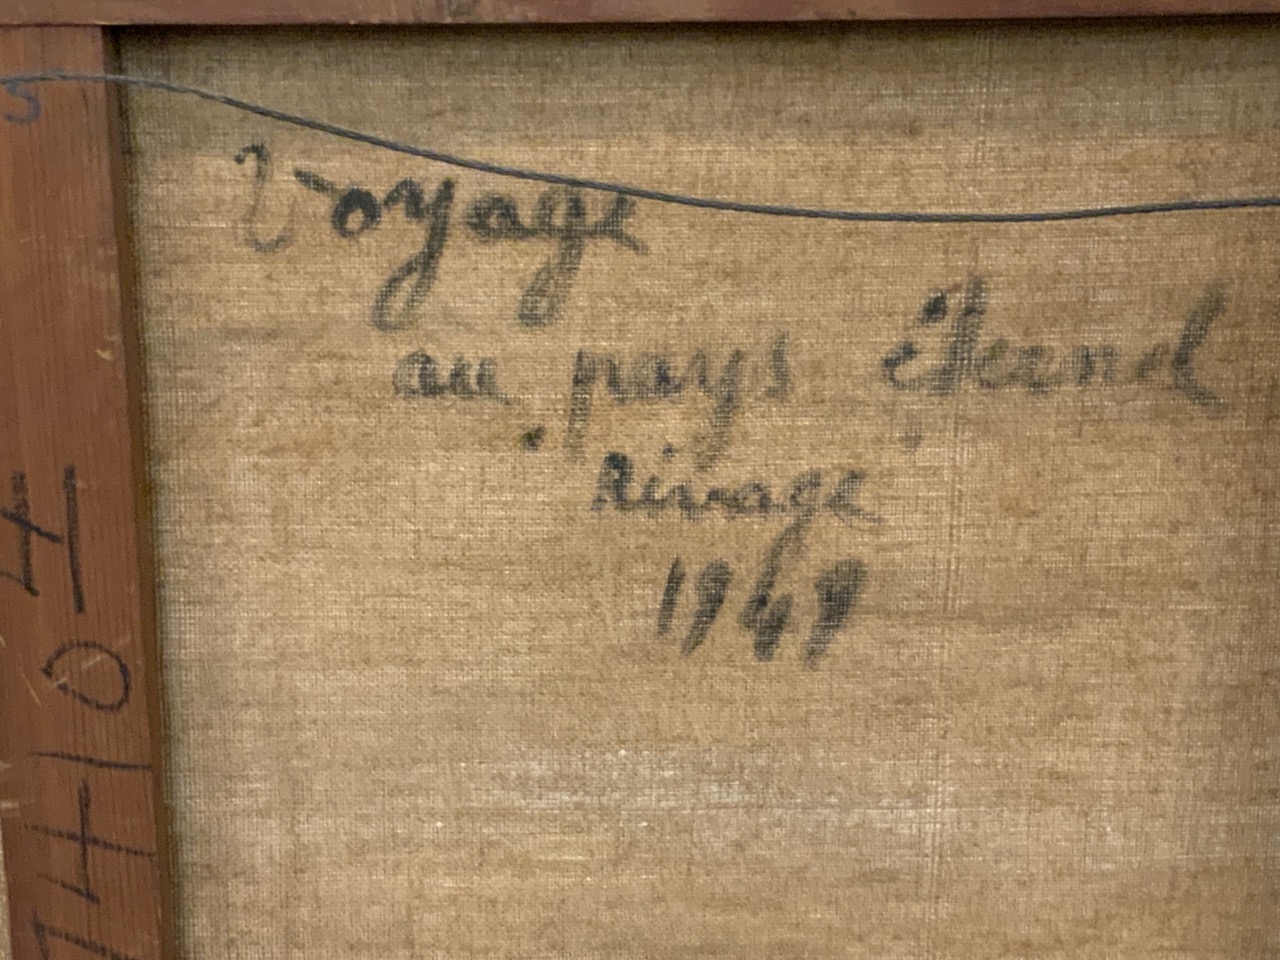 Voyage
au pays éternel
Rivage
1949
5